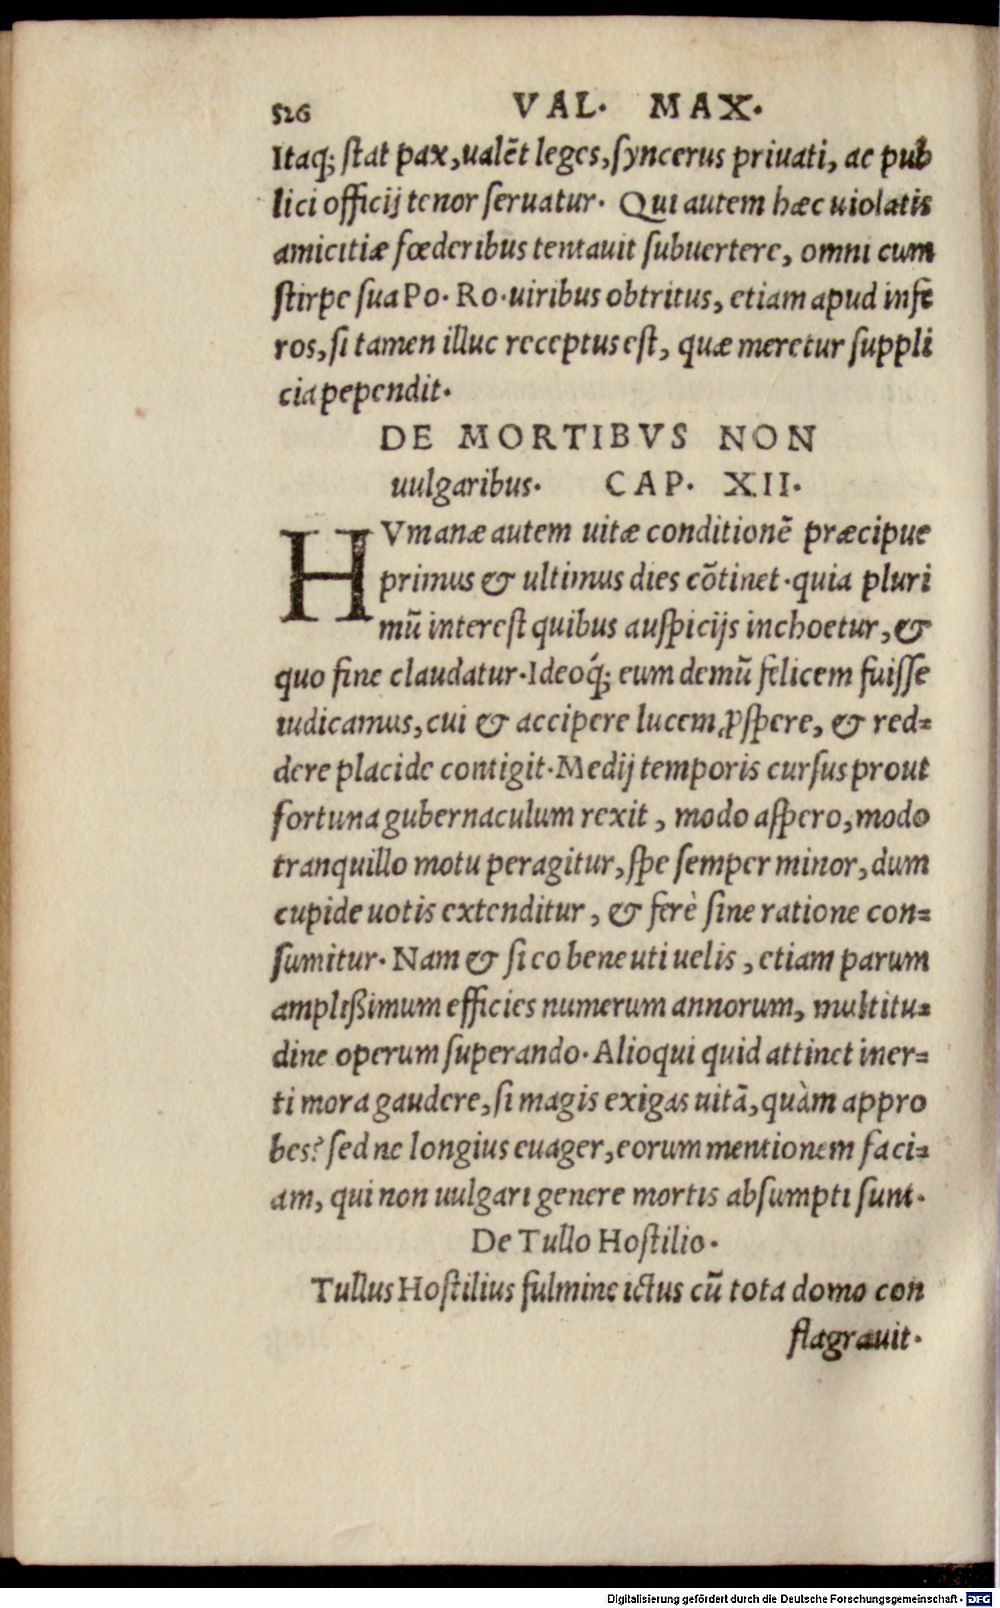 526 VAL. MAX.
Itaq; ſtat pax, ualēt leges, ſyncerus priuati, ac pub
lici officij tenor ſeruatur. Qui autem hæc uiolatis
amicitiæ fœderibus tentauit ſubuertere, omni cum
ſtirpe ſua Po. Ro. uiribus obtritus, etiam apud infe
ros, ſi tamen illuc receptus eſt, quæ meretur ſuppli
cia pependit.
DE MORTIBVS NON
uulgaribus. CAP. XII.
HVmanæ autem uitæ conditionē præcipue
primus & ultimus dies cōtinet. quia pluri
mū intereſt quibus auſpicijs inchoetur, &
quo fine claudatur. Ideoq́; eum demū felicem fuiſſe
iudicamus, cui & accipere lucem ꝓſpere, & red=
dere placide contigit. Medij temporis curſus prout
fortuna gubernaculum rexit, modo aſpero, modo
tranquillo motu peragitur, ſpe ſemper minor, dum
cupide uotis extenditur, & ferè ſine ratione con=
ſumitur. Nam & ſi eo bene uti uelis, etiam parum
ampliſſimum efficies numerum annorum, multitu=
dine operum ſuperando. Alioqui quid attinet iner=
ti mora gaudere, ſi magis exigas uitā, quàm appro
bes? ſed ne longius euager, eorum mentionem faci=
am, qui non uulgari genere mortis abſumpti ſunt.
De Tullo Hoſtilio.
Tullus Hoſtilius fulmine ictus cū tota domo con
flagrauit.
Digitalisierung gefördert durch die Deutsche Forschungsgemeinschaft - DFG